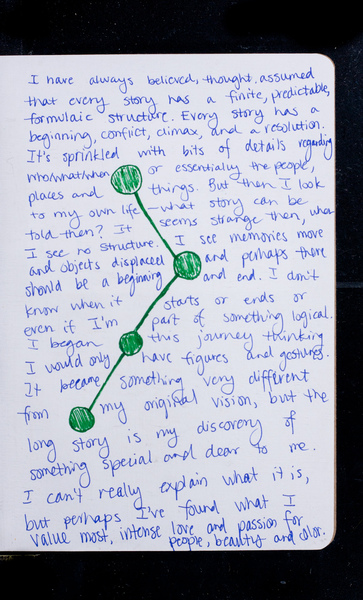 I have always believed, thought, assumed
that every story has a finite, predictable,
formulaic structure. Every story has a
beginning, conflict, climax, and a resolution.
It's sprinkled with bits of details regarding
who/what/when or essentially the people,
places and things. But then I look
to my own life – what story can be
told then? It seems strange then, when
I see no structure. I see memories move
and objects displaced and perhaps there
should be a beginning and end. I don't
know when it starts or ends or
even if I'm part of something logical.
I began this journey thinking
I would only have figures and gestures.
It became something very different
from my original vision, but the
long story is my discovery of
something special and dear to me.
I can't really explain what it is,
but perhaps I've found what I
value most, intense love and passion for
people, beauty and color.